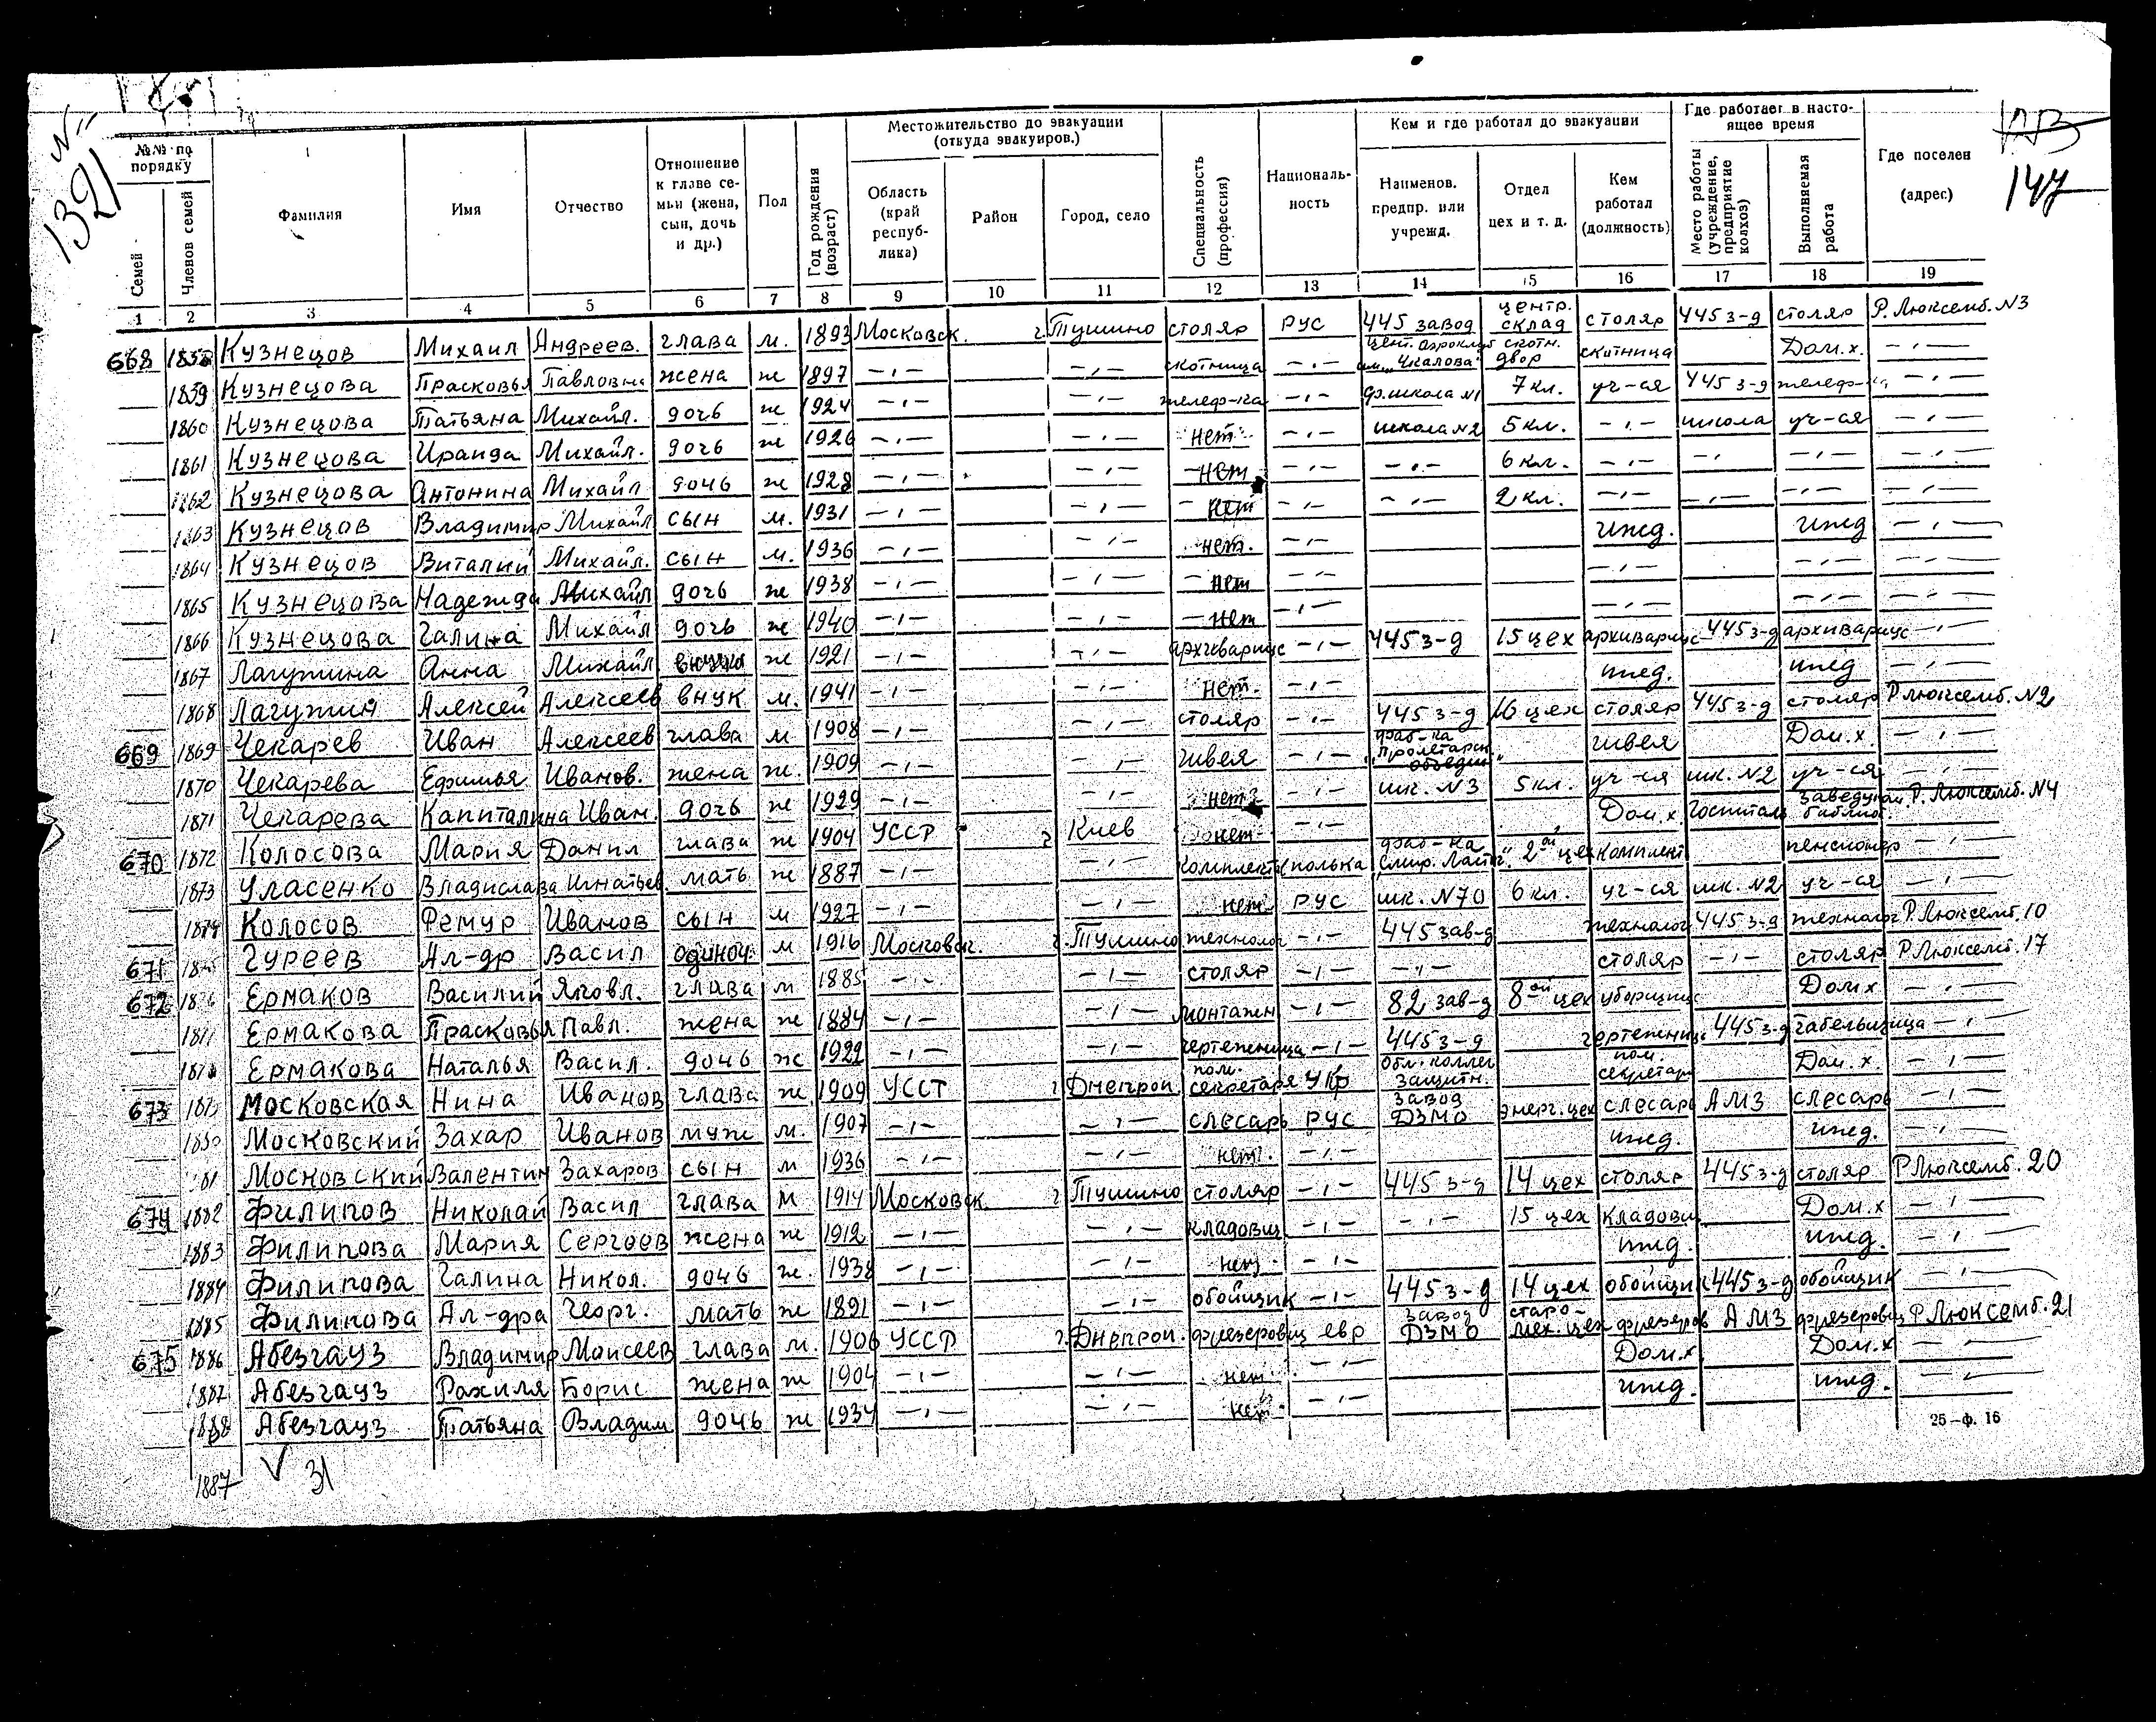 N 1391
147
№№ по порядку
Семей
Членов семей
Фамилия
Имя
Отчество
Отношение к главе семьи (жена, сын, дочь и др.)
Пол
Год рождения (возраст)
Местожительство до эвакуации (откуда эвакуиров.)
Область (край республика)
Район
Город, село
Специальность (профессия)
Националь-ность
Кем и где работал до эвакуации
Наименов. предпр. или учрежд.
Отдел цех и т. д.
Кем работал (должность)
Где работает в насто-ящее время
Место работы (учреждение, предприятие колхоз)
Выполняемая работа
Где поселен (адрес)
1 2 3 4 5 6 7 8 9 10 11 12 13 14 15 16 17 18 19
668 1858 Кузнецов Михаил Андреев. глава м. 1893 Московск. г. Тушино столяр рус 445 завод центр. склад столяр 445 з-д столяр Р. Люксемб. N3
1859 Кузнецова Прасковья Павловна жена ж 1897 -,- -,- скотница -,- цент. аэроклуб им. "Чкалова" скотн. двор скотница Дом.х. -,-
1860 Кузнецова Татьяна Михайл. дочь ж 1924 -,- -,- телеф-ка -,- ср. школа N1 7 кл. уч-ся 445 з-д телеф-ка -,-
1861 Кузнецова Ираида Михайл. дочь ж 1926 -,- -,- нет -,- школа N2 5 кл. -,- школа уч-ся -,-
1862 Кузнецова Антонина Михайл дочь ж 1928 -,- -,- нет -,- -,- 6 кл. -,- -,- -,- -,-
1863 Кузнецов Владимир Михайл сын м. 1931 -,- -,- нет -,- -,- 2 кл. -,- -,- -,- -,-
1864 Кузнецов Виталий Михайл. сын м. 1936 -,- -,- нет. -,- ижд. ижд -,-
1865 Кузнецова Надежда Михайл дочь ж 1938 -,- -,- нет -,- -,- -,- -,-
1866 Кузнецова Галина Михайл дочь ж 1940 -,- -,- нет -,- -,- -,- -,-
1867 Лагутина Анна Михайл ж 1921 -,- -,- архивариус -,- 445 з-д 15 цех архивариус 445 з-д архивариус -,-
1868 Лагутин Алексей Алексеев внук м. 1941 -,- -,- нет. -,- ижд. ижд -,-
669 1869 Чекарев Иван Алексеев глава м 1908 -,- столяр -,- 445 з-д 16 цех столяр 445 з-д столяр Р Люксемб. N2
1870 Чекарева Ефимья Иванов. жена ж. 1909 -,- -,- швея -,- фаб-ка "Пролетарск. объедин" швея Дом.х. -,-
1871 Чекарева Капиталина Иван. дочь ж 1929 -,- -,- нет -,- шк. N3 5 кл. уч-ся шк. N2 уч-ся -,-
670 1872 Колосова Мария Данил глава ж 1904 УССР г Киев нет -,- Дом.х. Госпиталь библиот. Р. Люксемб. N4
1873 Уласенко Владислава Игнатьев. мать ж 1887 -,- -,- полька фаб-ка 2ой цех комплект пенсионер -,-
1874 Колосов Фемур Иванов сын м 1927 -,- -,- нет рус шк. N70 6 кл. уч-ся шк. N2 уч-ся -,-
671 1875 Гуреев Ал-др Васил одиноч. м 1916 Московск. г. Тушино технолог -,- 445 зав-д технолог 445 з-д технолог Р. Люксемб. 10
672 1876 Ермаков Василий Яковл. глава м 1885 -,- -,- столяр -,- -,- столяр -,- столяр Р Люксемб. 17
1877 Ермакова Прасковья Павл. жена ж 1884 -,- -,- монтажн -,- 82 зав-д 8ой цех уборщица Дом х -,-
1878 Ермакова Наталья Васил. дочь ж 1922 -,- -,- чертежница -,- 445 з-д чертежниц. 445 з-д табельщица -,-
673 1879 Московская Нина Иванов глава ж 1909 УССТ г Днепроп. пом. секретаря Укр Обл. коллег защитн. пом. секретаря Дом.х. -,-
1880 Московский Захар Иванов муж м. 1907 -,- -,- слесарь рус завод ДЗМО энерг. цех слесарь АМЗ слесарь -,-
1881 Московский Валентин Захаров сын м 1936 -,- -,- нет. -,- ижд. ижд. -,-
674 1882 Филипов Николай Васил глава м 1914 Московск. г Тушино столяр -,- 445 з-д 14 цех столяр 445 з-д столяр Р Люксемб. 20
1883 Филипова Мария Сергеев жена ж 1912 -,- -,- кладовщ. -,- -,- 15 цех кладовщ Дом.х -,-
1884 Филипова Галина Никол. дочь ж. 1938 -,- -,- нет -,- ижд. ижд. -,-
1885 Филипова Ал-дра Георг. мать ж 1891 -,- -,- обойщик -,- 445 з-д 14 цех обойщик 445 з-д обойщик -,-
675 1886 Абезгауз Владимир Моисеев глава м. 1906 УССР г. Днепроп. фрезеровщ евр завод ДЗМО старо-мех. цех фрезеров АМЗ фрезеровщ Р Люксемб. 21
1887 Абезгауз Рахиля Борис жена ж 1904 -,- -,- нет -,- Дом.х. Дом.х -,-
1888 Абезгауз Татьяна Владим дочь ж 1934 -,- -,- нет -,- ижд. ижд. -,-
25-ф. 16
1887 V 31